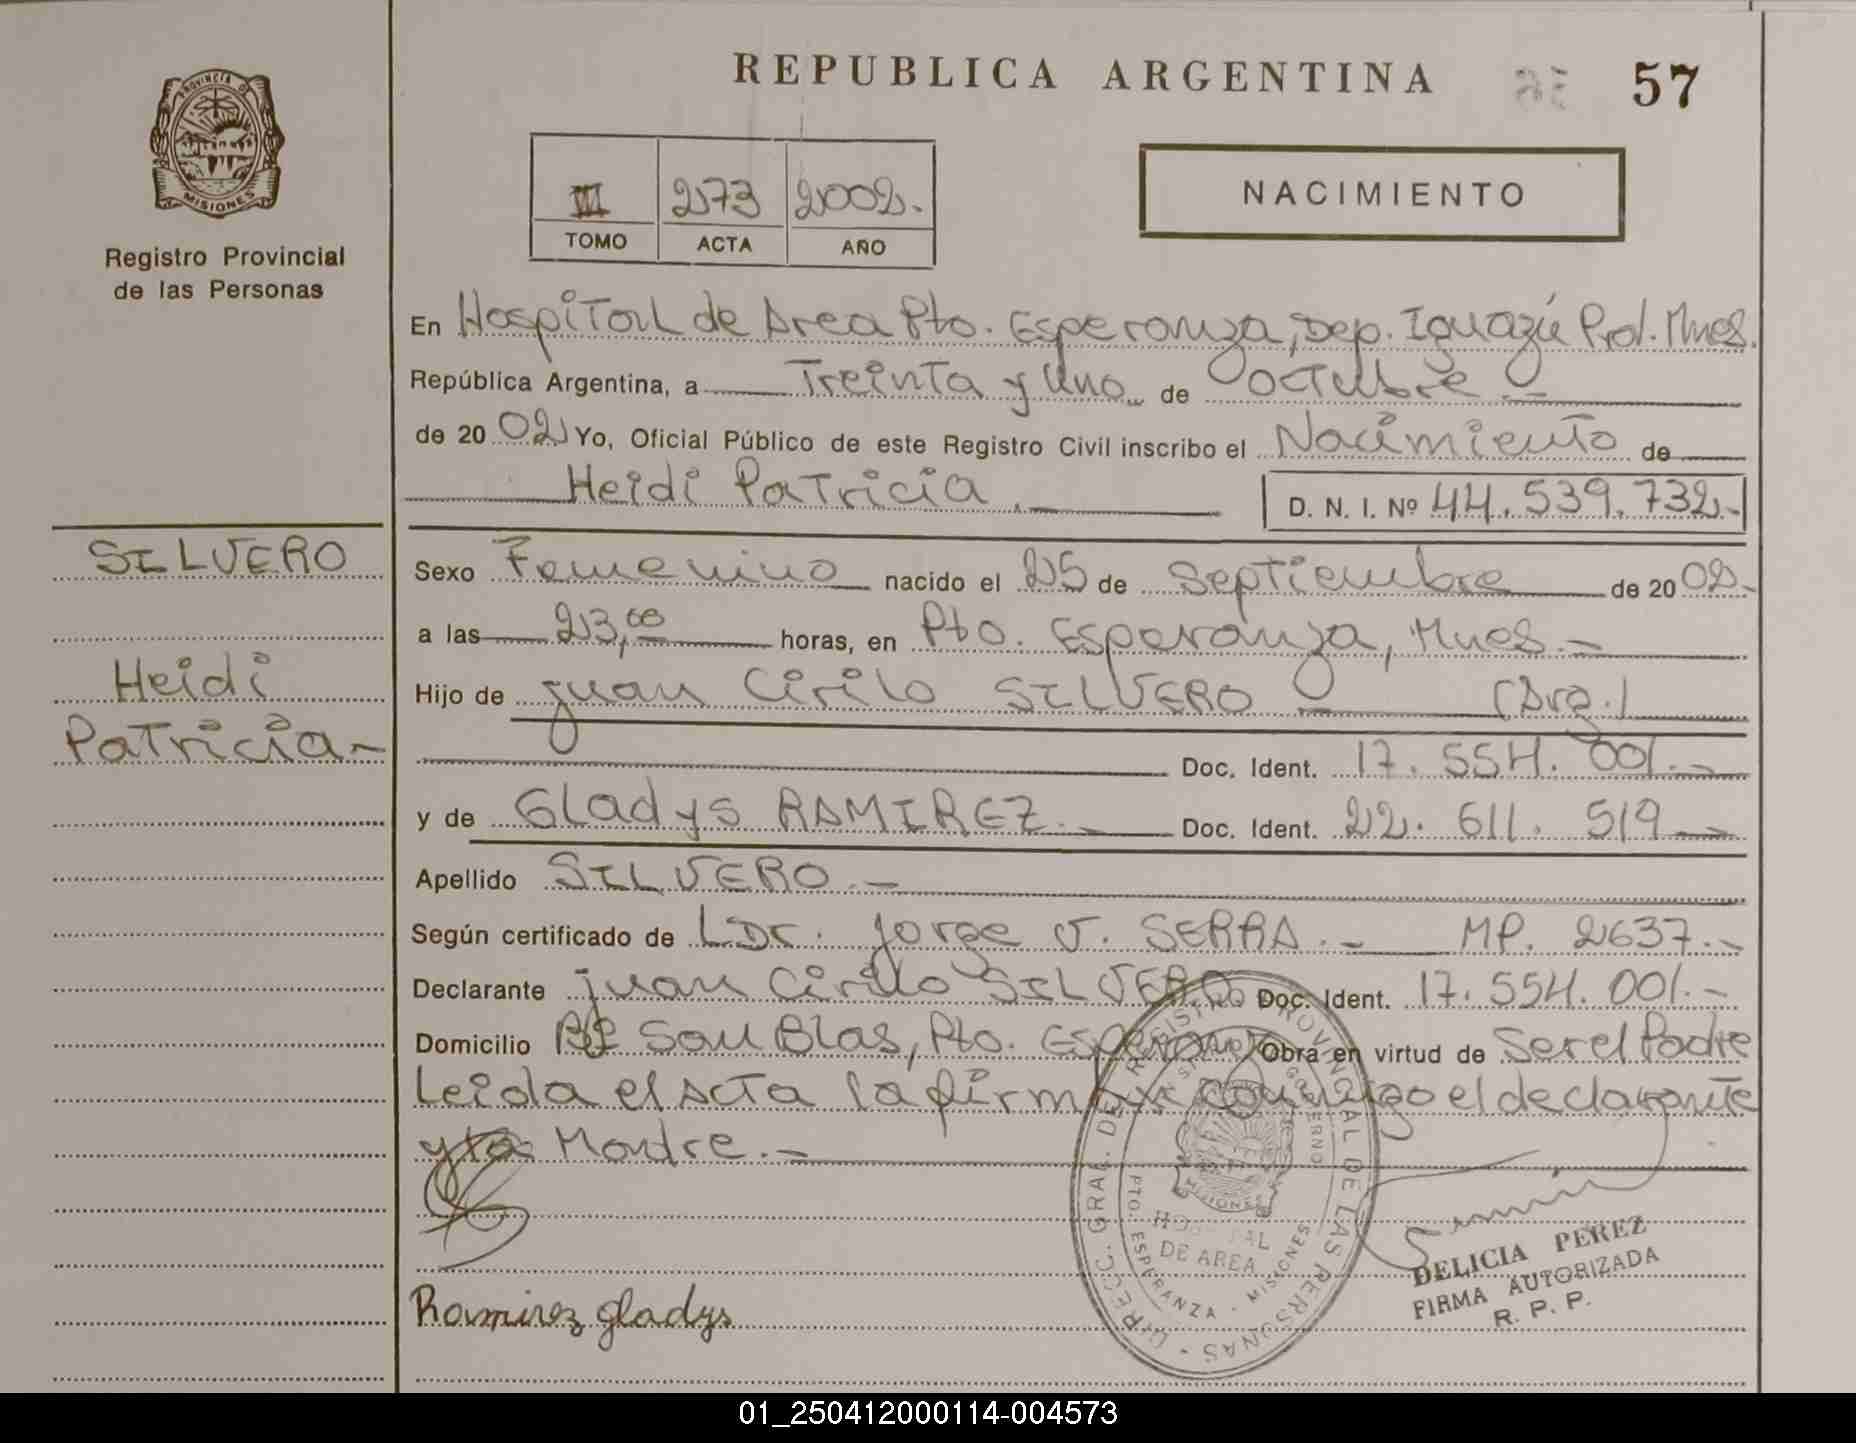 REPUBLICA ARGENTINA 57
PROVINCIA D
MISIONES
Registro Provincial
de las Personas
III 273 2002.
TOMO ACTA AÑO
NACIMIENTO
En Hospital de Area Pto. Esperanza, Dep. Iguazú Mnes.
República Argentina, a Treinta y Uno de octubre.-
de 20 02 Yo, Oficial Público de este Registro Civil inscribo el Nacimiento de
Heidi Patricia.
D. N. I. Nº 44.539.732.-
SILVERO
Heidi
Patricia-
Sexo Femenino nacido el 25 de Septiembre de 20 02.-
a las 23,00 horas, en Pto. Esperanza, Mnes.-
Hijo de Juan Cirilo SILVERO - (Arg.)
Doc. Ident. 17.554.001.-
y de Gladys RAMIREZ.- Doc. Ident. 22.611.519.-
Apellido SILVERO.-
Según certificado de Dr. Jorge V. SERRA.- MP. 2637.-
Declarante Juan Cirilo SILVERO Doc. Ident. 17.554.001.-
Domicilio Bº San Blas, Pto. Esperanza Obra en virtud de Ser el Padre
Leida el Acta la firman conmigo el declarante
y la Madre.-
Ramirez gladys
DIRECC. GRAL. DE REGISTRO PROVINCIAL DE LAS PERSONAS
GOBIERNO
MISIONES
HOSPITAL
DE AREA
PTO. ESPERANZA - MISIONES
DELICIA PEREZ
FIRMA AUTORIZADA
R. P. P.
01_250412000114-004573